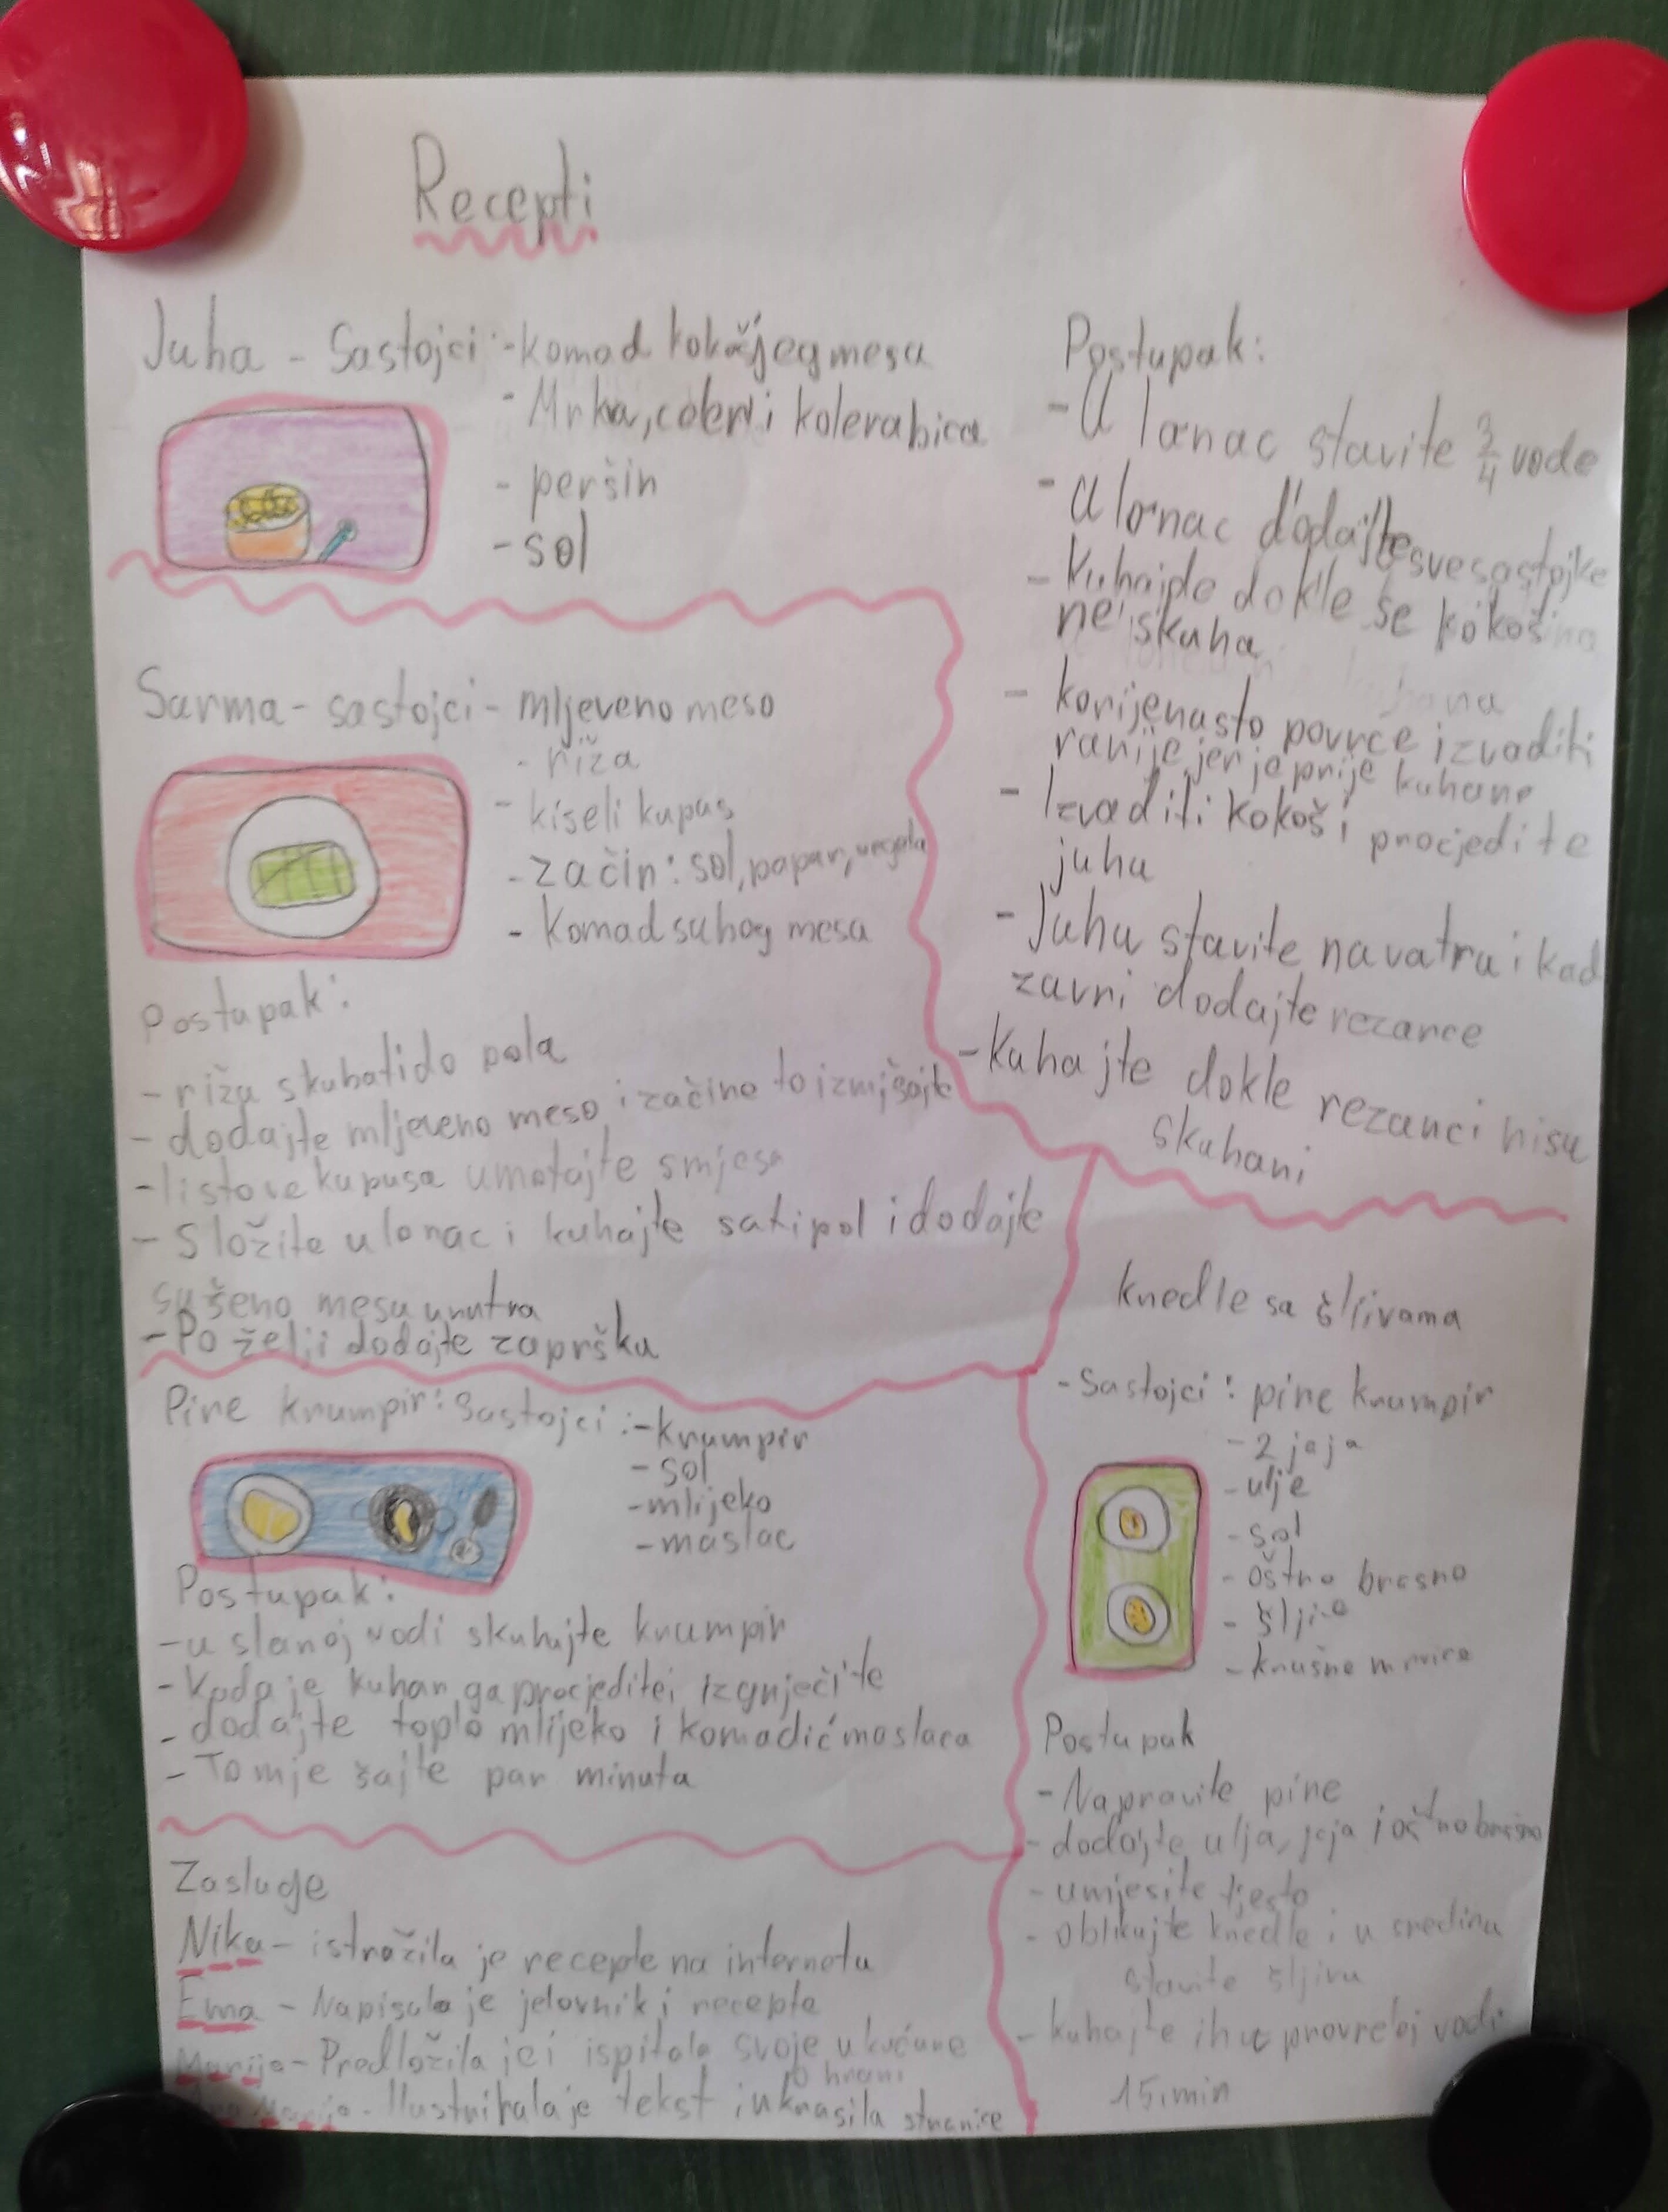 Recepti
Juha - Sastojci: - komad kokošjeg mesa
- Mrkva, celer i kolerabica
- peršin
- sol
Postupak:
- U lonac stavite 3/4 vode
- U lonac dodajte sve sastojke
- Kuhajde dokle se kokoš
ne skuha
- korijenasto povrće izvaditi
ranije jer je prije kuhano
- Izvaditi kokoš i procjedite
juhu
- Juhu stavite na vatru i kad
zavri dodajte rezance
- Kuhajte dokle rezanci nisu
skuhani
Sarma - sastojci - mljeveno meso
- riža
- kiseli kupus
- začin: sol, papar, vegeta
- Komad suhog mesa
Postupak:
- rižu skuhati do pola
- dodajte mljeveno meso i začine to izmješajte
- listove kupusa umotajte smjesa
- Složite u lonac i kuhajte sat i pol i dodajte
sušeno mesu unutra
- Po želji dodajte zapršku
Pire krumpir: Sastojci: - krumpir
- sol
- mlijeko
- maslac
Postupak:
- u slanoj vodi skuhajte krumpir
- Kada je kuhan ga procjedite i izgnječite
- dodajte toplo mlijeko i komadić maslaca
- To mješajte par minuta
Knedle sa šlivama
- Sastojci: pire krumpir
- 2 jaja
- ulje
- sol
- oštro brašno
- šljive
- krušne mrvice
Postupak
- Napravite pire
- dodajte ulja, jaja i oštro brašno
- umjesite tjesto
- oblikujte knedle i u sredinu
stavite šljivu
- kuhajte ih u provreloj vodi
15 min
Zasluge
Nika - istražila je recepte na internetu
Ema - Napisala je jelovnik i recepte
Marija - Predložila je i ispitala svoje ukućane
o hrani
Marija - Ilustrirala je tekst i ukrasila stranice